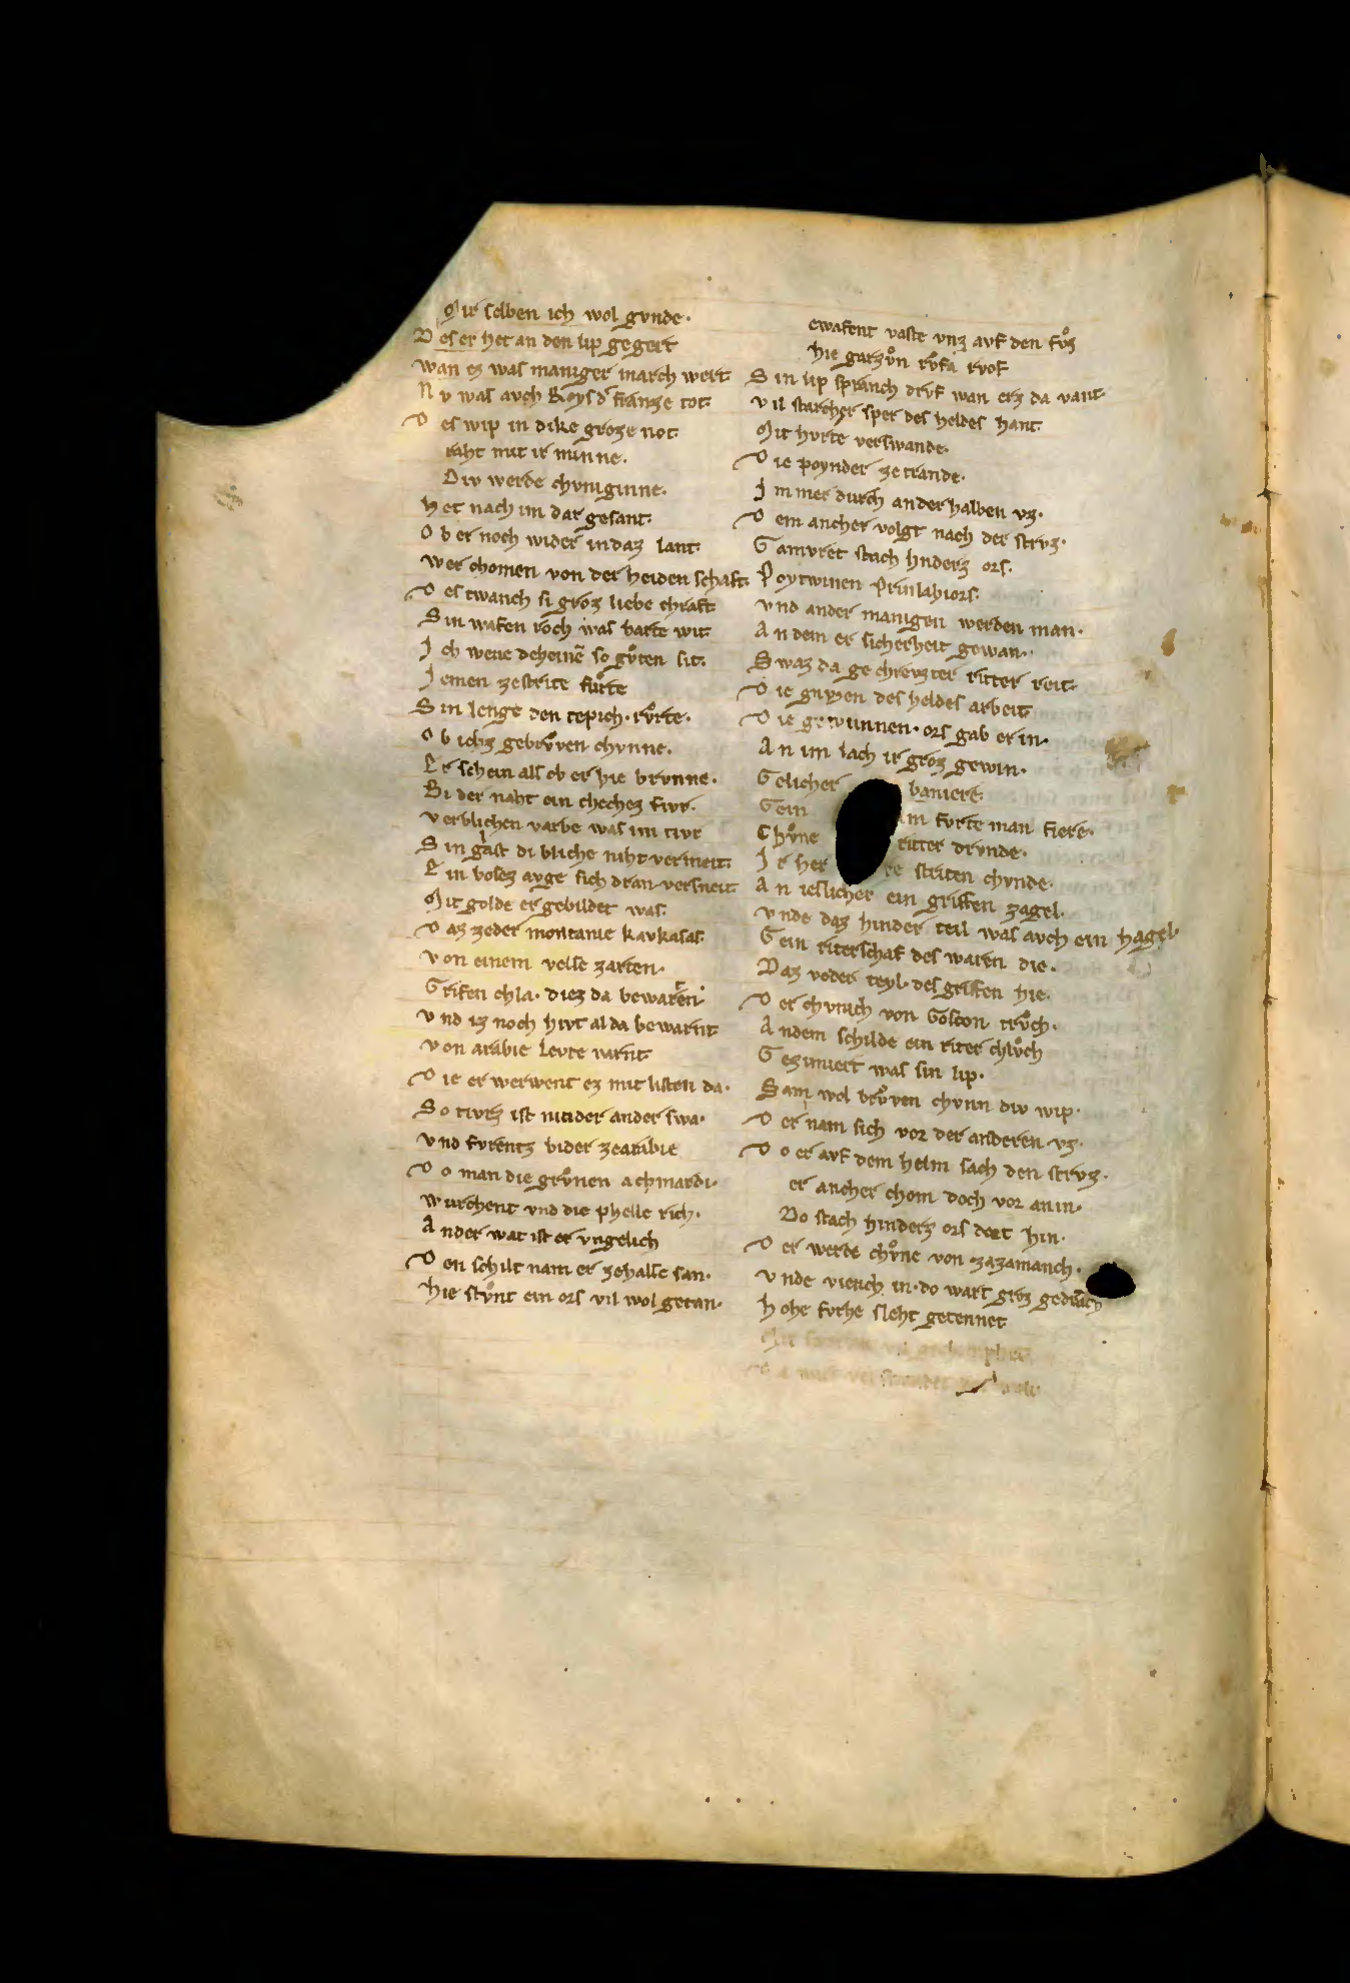 Mir selben ich wol gvnde.
Des er het an den lip gegert
wan ez was maniger march wert
Nv was avch Roys d' franze tot.
Des wip in dike groze not.
raht mit ir minne.
Div werde chvniginne.
het nach im dar gesant.
Ob er noch wider in daz lant.
wer chomen von der heiden schaft.
Des twanch si groz liebe chraft
Sin wafen roch was harte wit.
Ich wene deheinē so gůten sit.
Iemen zestrite fůrte
Sin lenge den tepich. růrte.
Ob ichz gebrvͦven chvnne.
Er schein als ob er hie brvnne.
Bi der naht ein chechez fivr.
verblichen varbe was im tivr
Sin glast di bliche niht vermeit.
Ein bosez avge sich dran versneit
Mit golde er gebildet was.
Daz zeder montanie kavkasas.
von einem velse zarten.
Grifen chla. diez da bewarten.
vnd iz noch hivt al da bewarnt
von arabie levte varnt
Die er werwent ez mit listen da.
So tivrz ist nitider ander swa.
vnd fvrentz bider zearabie
Do man die grůnen achmardi.
wurchent vnd die phelle rich.
Ander wat ist er vngelich
Den schilt nam er zehalse san.
hie stvͦnt ein ors vil wol getan.
ewafent vaste vnz avf den fvͦz
hie garzvͦn rvͦfa rvof
Sin lip spranch drvf wan erz da vant.
vil starcher sper des heldes hant.
Mit hvrte verswande.
Die poynder zetrande.
Immer durch anderhalben vz.
Dem ancher volgt nach der strvz.
Gamvret stach hnderz ors.
Poytwinen Prinlahiors.
vnd ander manigen werden man.
An dem er sicherheit gewan.
Swaz da gechrevzter ritter reit.
Die gnvzen des heldes arbeit
Die gewunnen. ors gab er in.
An im lach ir groz gewin.
Gelicher baniere.
Gein im fvrte man fiere.
Chvͦne ritter drvnde.
Ir her re striten chvnde.
An ieslicher ein griffen zagel.
vnde daz hinder teil was avch ein hagel.
Gein riterschaf des waren die.
Daz voder teyl. des griffen hie.
Der chvnich von Goscon trvͦch.
An dem schilde ein riter chlvͦch
Gezimiert was sin lip.
Sam wol brvͦven chvnn div wip.
Der nam sich vor der anderen vz.
Do er avf dem helm sach den strvz.
er ancher chom doch vor an in.
Do stach hinderz ors dort hin.
Der werde chvͦne von zazamanch.
vnde viench in. do wart groz gedranch
hohe fvrhe sleht getennet